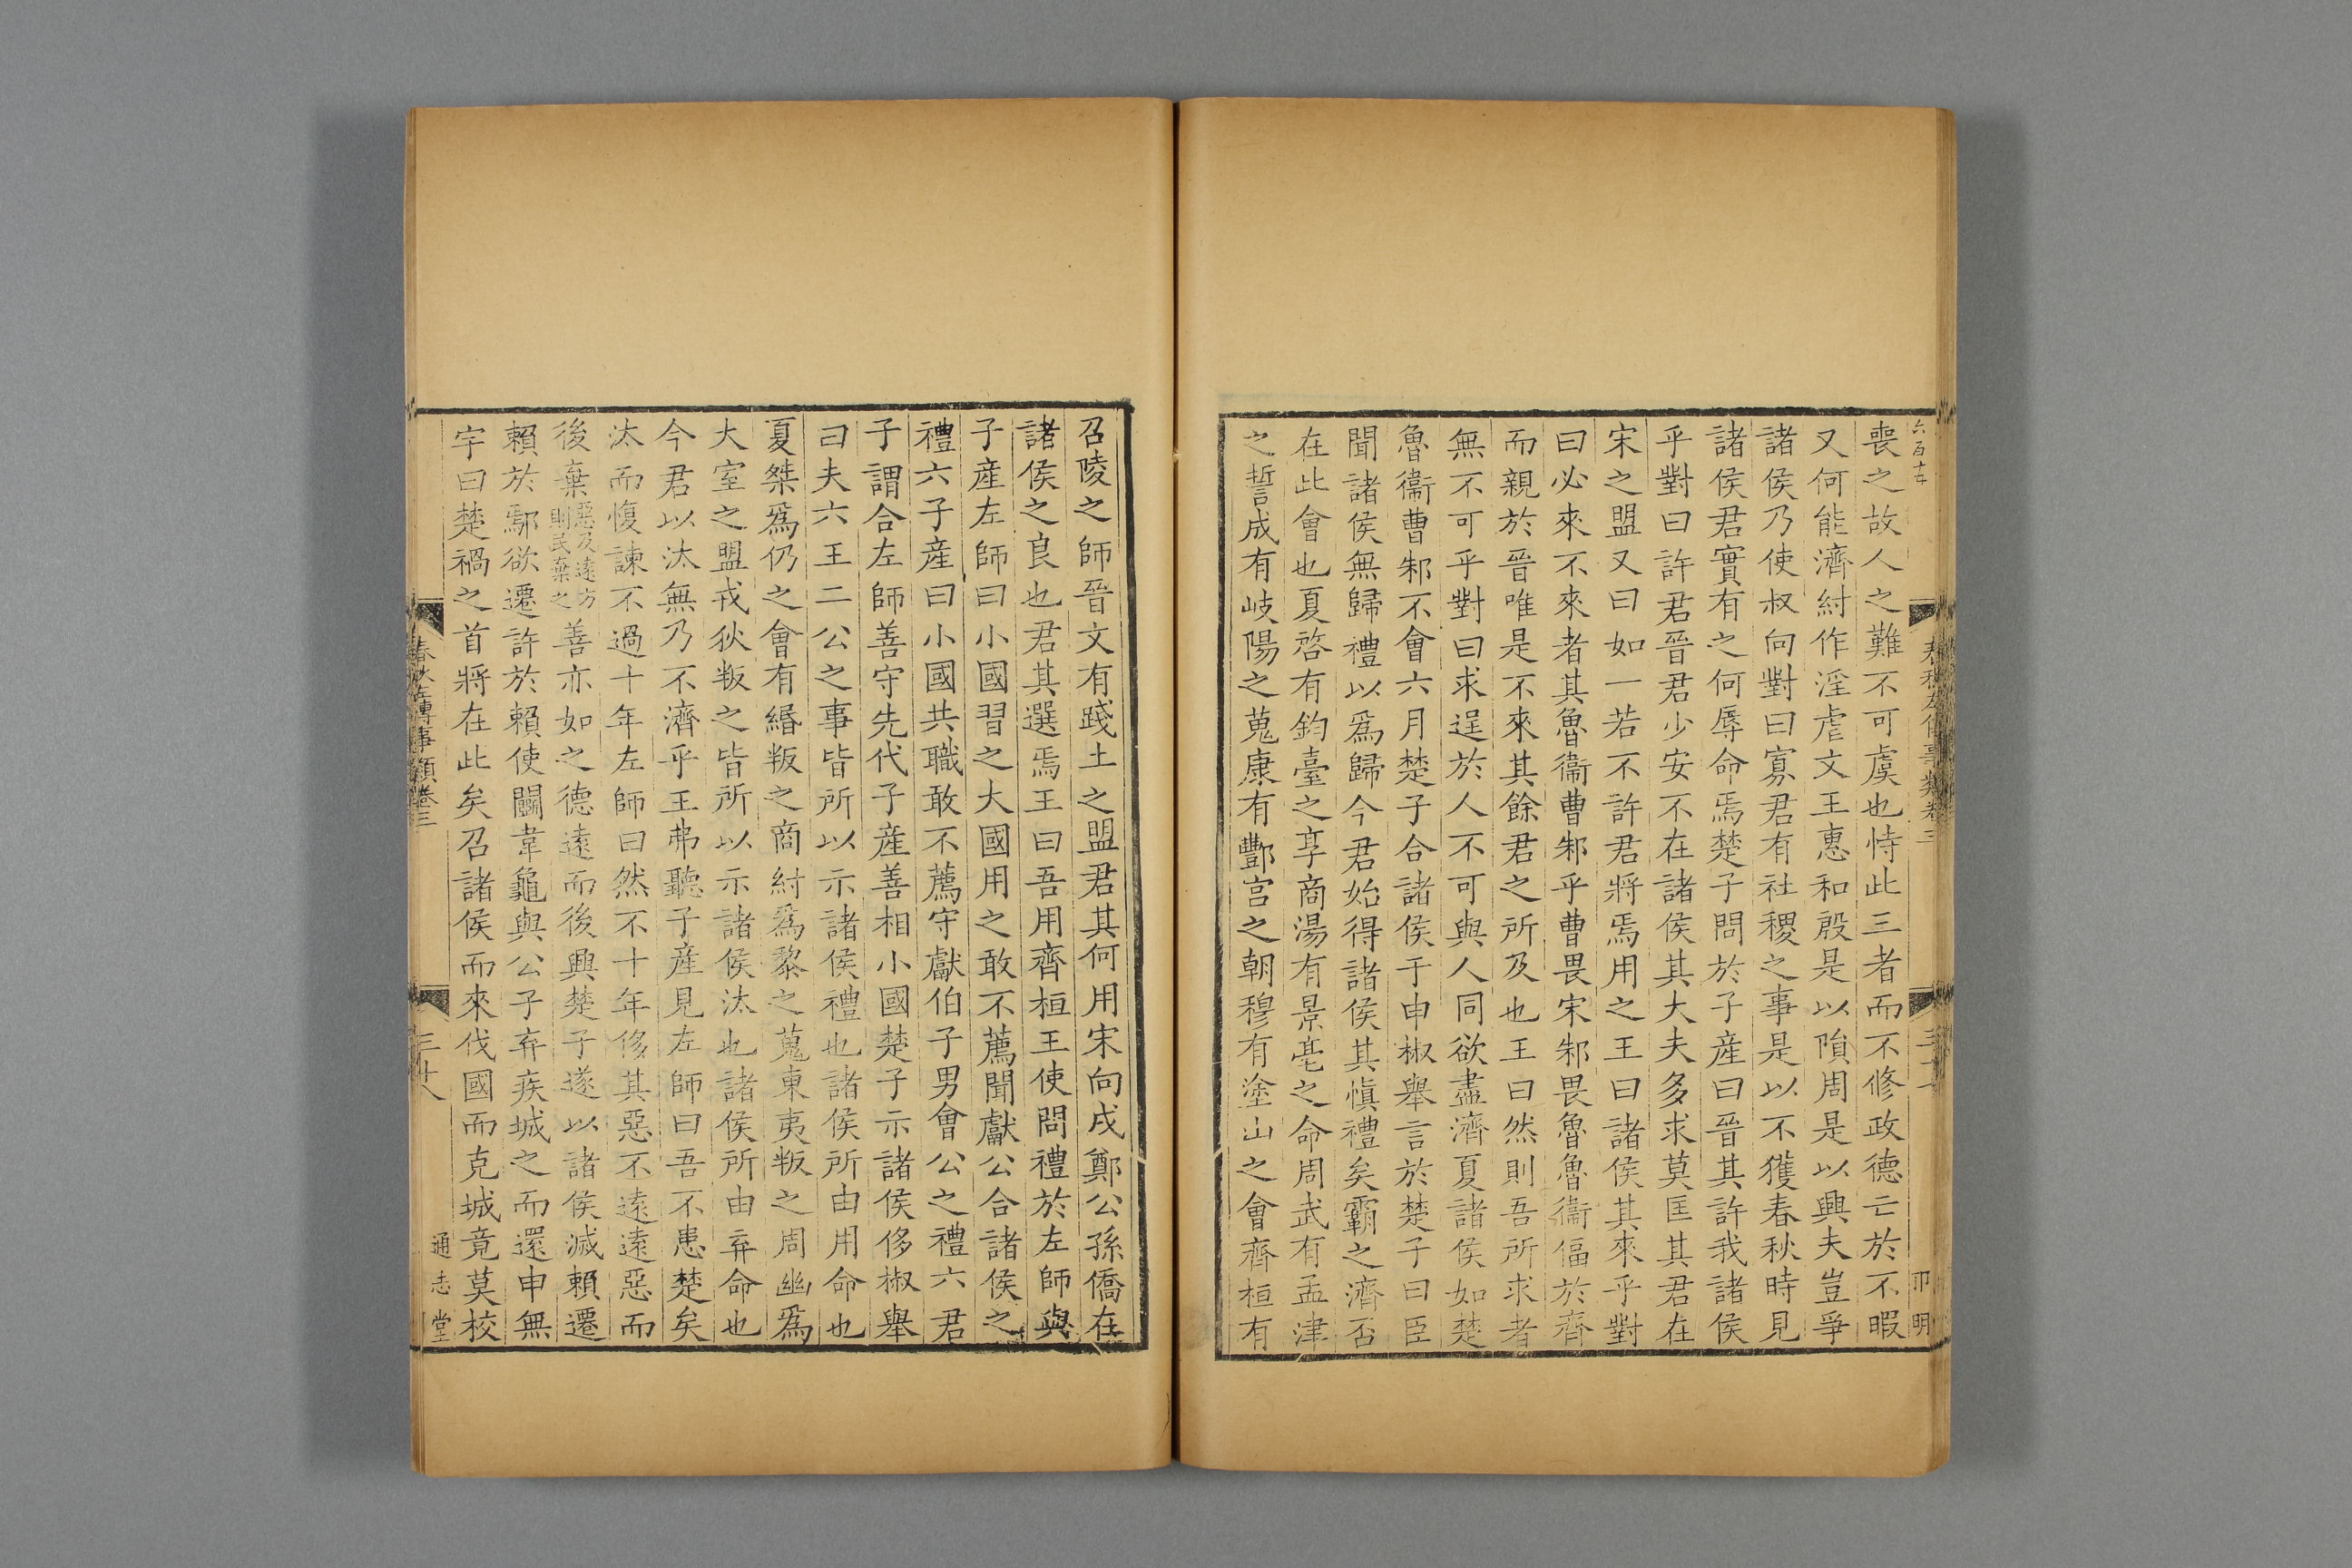 喪之故人之難不可虞也恃此三者而不修政德亡於不暇
又何能濟紂作淫虐文王惠和殷是以隕周是以興夫豈爭
諸侯乃使叔向對曰寡君有社稷之事是以不獲春秋時見
諸侯君實有之何辱命焉楚子問於子產曰晉其許我諸侯
乎對曰許君晉君少安不在諸侯其大夫多求莫匡其君在
宋之盟又曰如一若不許君將焉用之王曰諸侯其來乎對
曰必來不來者其魯衞曹邾乎曹畏宋邾畏魯魯衞偪於齊
而親於晉唯是不來其餘君之所及也王曰然則吾所求者
無不可乎對曰求逞於人不可與人同欲盡濟夏諸侯如楚
魯衞曹邾不會六月楚子合諸侯于申椒舉言於楚子曰臣
聞諸侯無歸禮以爲歸今君始得諸侯其愼禮矣霸之濟否
在此會也夏啓有鈞臺之享商湯有景亳之命周武有孟津
之誓成有岐陽之蒐康有酆宮之朝穆有塗山之會齊桓有
召陵之師晉文有踐土之盟君其何用宋向戌鄭公孫僑在
諸侯之良也君其選焉王曰吾用齊桓王使問禮於左師與
子產左師曰小國習之大國用之敢不薦聞獻公合諸侯之
禮六子產曰小國共職敢不薦守獻伯子男會公之禮六君
子謂合左師善守先代子產善相小國楚子示諸侯侈椒舉
曰夫六王二公之事皆所以示諸侯禮也諸侯所由用命也
夏桀爲仍之會有緡叛之商紂爲黎之蒐東夷叛之周幽爲
大室之盟戎狄叛之皆所以示諸侯汰也諸侯所由弃命也
今君以汰無乃不濟乎王弗聽子產見左師曰吾不患楚矣
汰而愎諫不過十年左師曰然不十年侈其惡不遠遠惡而
後棄惡及遠方則民棄之善亦如之德遠而後興楚子遂以諸侯滅賴遷
賴於鄢欲遷許於賴使鬭韋龜與公子弃疾城之而還申無
宇曰楚禍之首將在此矣召諸侯而來伐國而克城竟莫校
春秋左傳事類卷三
三十八
通志堂